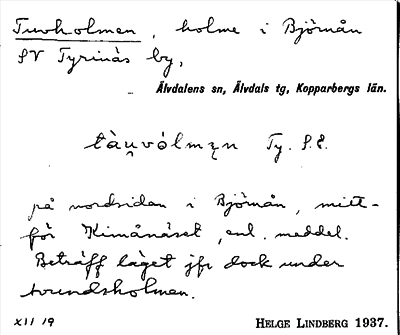 Tuvholmen, holme i Björnån
SV Tyrinäs by,
Älvdalens sn, Älvdals tg, Kopparbergs län.
Ty. S.E.
på nordsidan i Björnån, mitt-
för Kimånäset, enl. meddel.
Beträff läget jfr dock under
Arundsholmen.
XII 19 HELGE LINDBERG 1937.